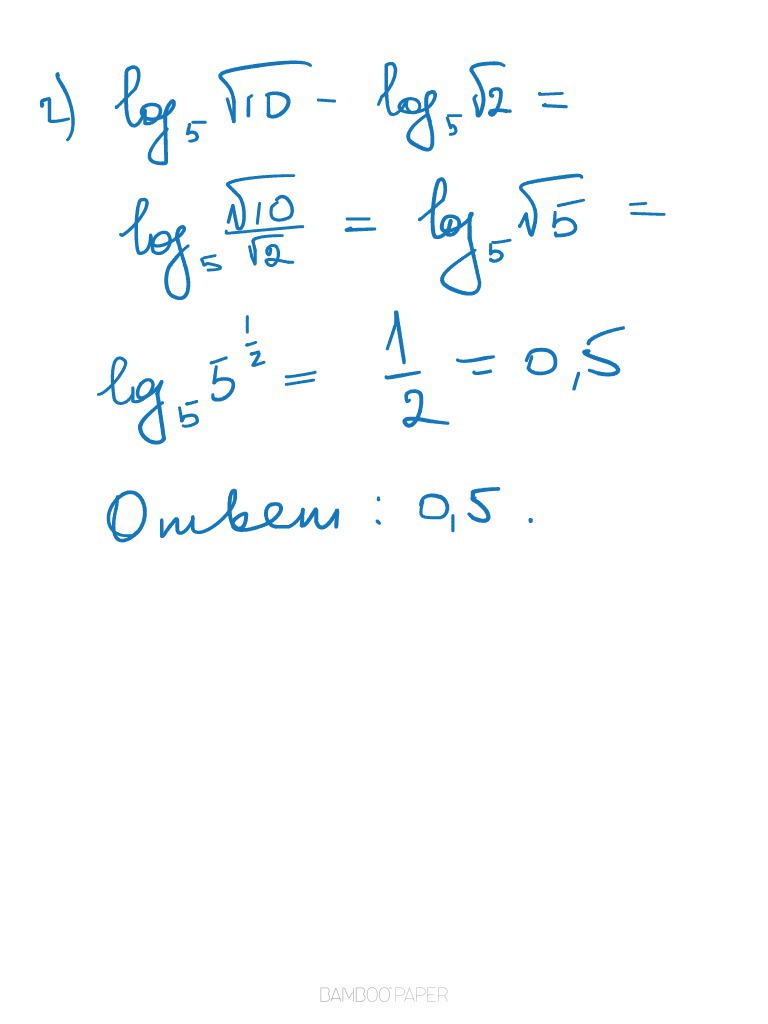 2) log₅ √10 - log₅ √2 =
log₅ √10/√2 = log₅ √5 =
log₅ 5^(1/2) = 1/2 = 0,5
Ответ: 0,5.
BAMBOO PAPER